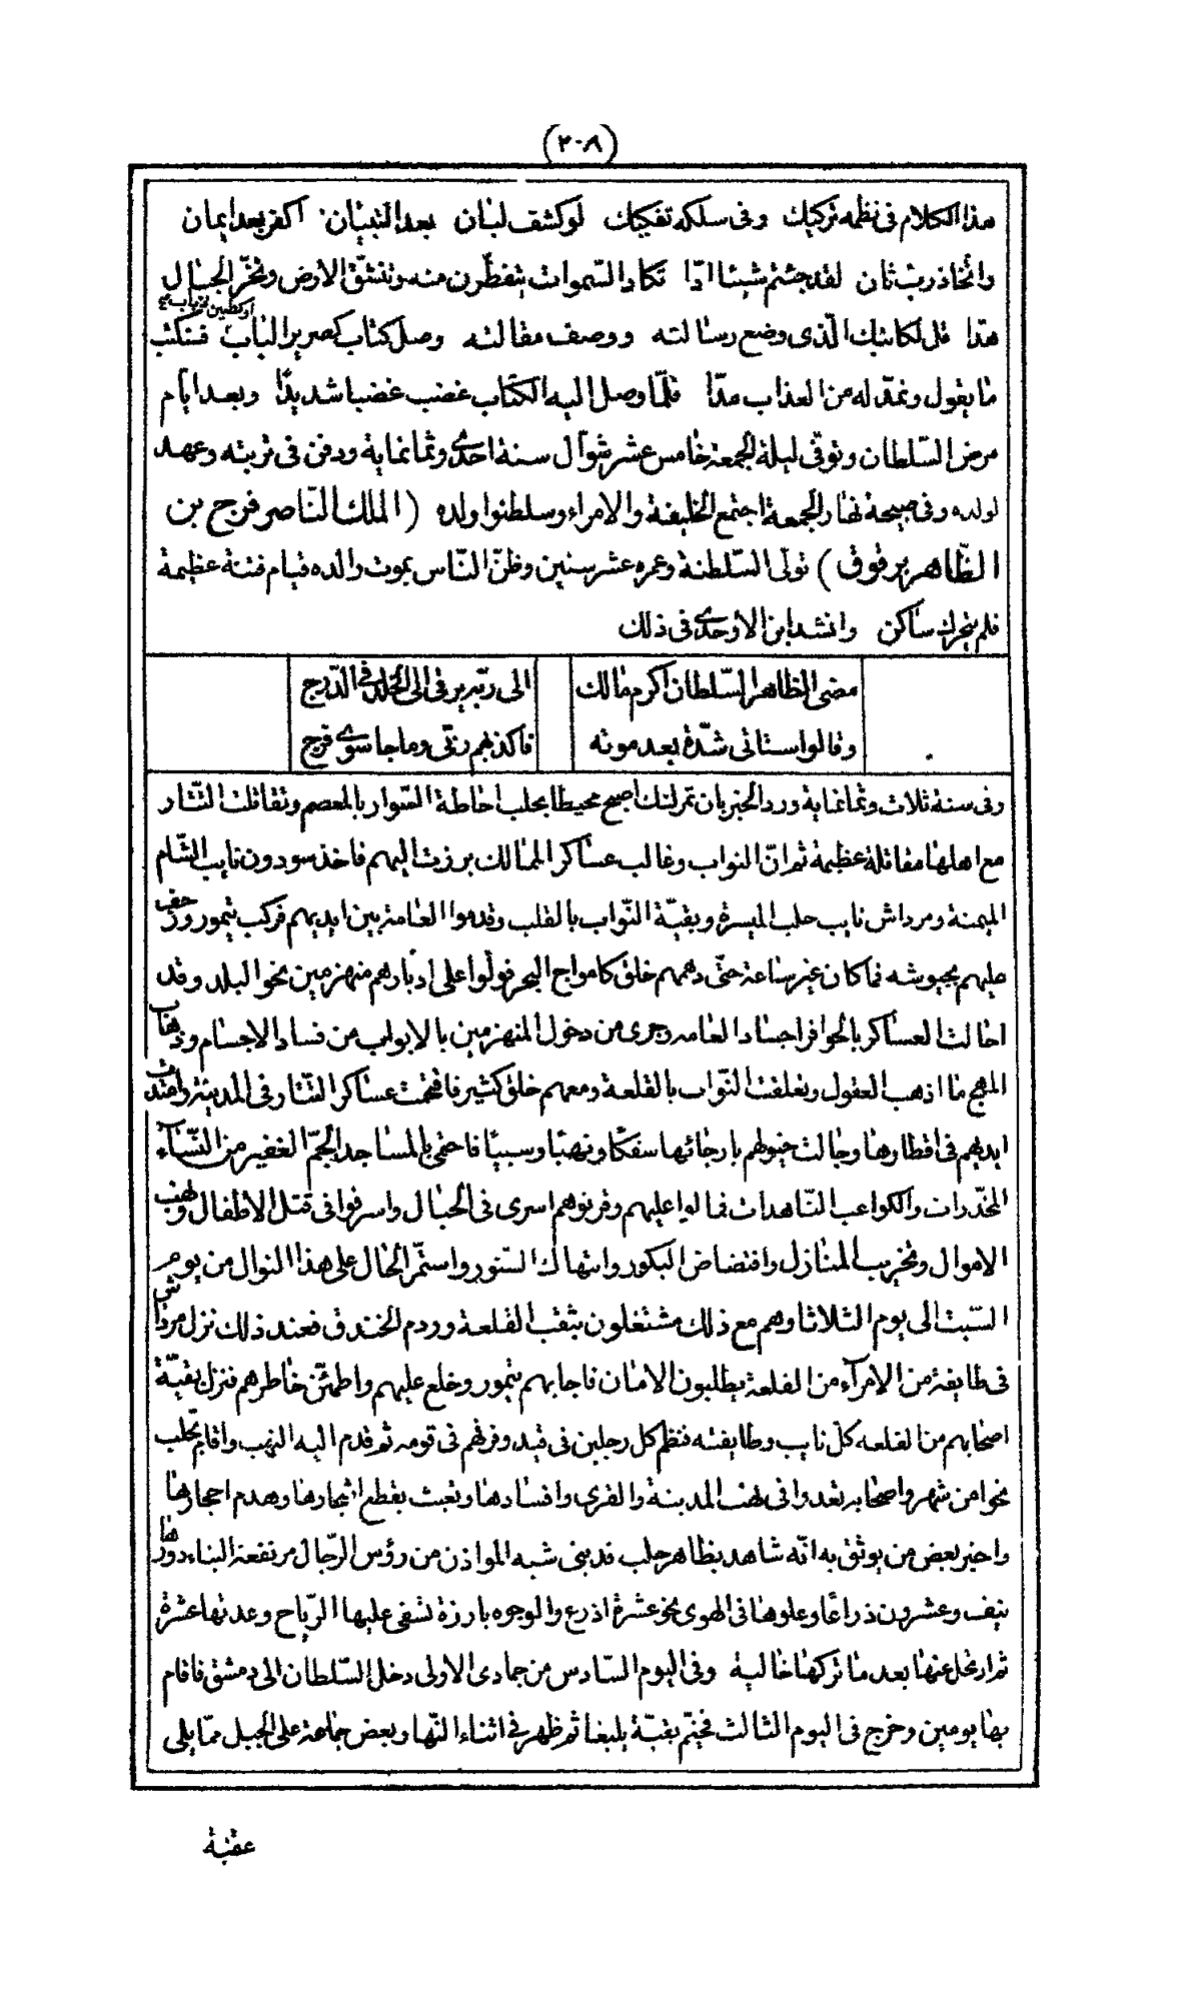 (٢٠٨)
هذا الكلام فى نظمه تركيك وفى سلكه تفكيك لو كشف لبان بعد التبيان اكفر بعد ايمان
واتخاذ رب ثان لقد جئتم شيئا ادّا تكاد السّموات يتفطّرن منه وتنشقّ الارض وتخرّ الجبال
او كطنين ذباب
هدّا قل لكاتبك الّذى وضع رسالته ووصف مقالته وصل كتاب كصرير الباب فسنكتب
ما يقول ونمدّ له من العذاب مدّا فلمّا وصل اليه الكتاب غضب غضبا شديدًا وبعد ايّام
مرض السّلطان وتوفّى ليلة الجمعة خامس عشر شوّال سنة احدى وثمانماية ودفن فى تربته وعهد
لولده وفى صبيحة نهار الجمعة اجتمع الخليفة والامراء وسلطنوا ولده (الملك النّاصر فرج بن
الظّاهر برقوق) تولّى السّلطنة وعمره عشر سنين وظنّ النّاس بموت والده قيام فتنة عظيمة
فلم يتحرك ساكن وانشد ابن الاوحدى فى ذلك
مضى الظاهر السّلطان اكرم مالك الى ربّه يرقى الى الخلد فى الدّرج
وقالوا ستاتى شدّة بعد موته فاكذبهم ربّى وما جا سوى فرج
وفى سنة ثلاث وثمانماية ورد الخبر بان تمرلنك اصبح محيطا بحلب احاطة السّوار بالمعصم وتقاتلت التّتار
مع اهلها مقاتلة عظيمة ثم انّ النواب وغالب عساكر الممالك برزت اليهم فاخذ سودون نايب الشّام
الميمنة ومرداش نايب حلب الميسرة وبقيّة النّواب بالقلب وقدموا العامة بين ايديهم فركب تيمور وزحف
عليهم بجيوشه فما كان غير ساعة حتّى دهمهم خلق كامواج البحر فولّوا على ادبارهم منهزمين نحو البلد وقد
احالت العساكر بالحوافر اجساد العامه وجرى من دخول المنهزمين بالابواب من فساد الاجسام وذهاب
المهج ما اذهب العقول وتعلقت النّواب بالقلعة ومعهم خلق كثير فاقتحمت عساكر التتار فى المدينة وامتدت
ايديهم فى اقطارها وجالت خيولهم بارجائها سفكًا ونهبًا وسبيًا فاحتمى بالمساجد الجمّ الغفير من النّسآء
المخدّرات والكواعب النّاهدات فمالوا عليهم وقرنوهم اسرى فى الحبال واسرفوا فى قتل الاطفال ونهب
الاموال وتخريب المنازل وافتضاض البكور وانتهاك السّتور واستمّر الحال على هذا النوال من يوم
السّبت الى يوم الثلاثا وهم مع ذلك مشتغلون بنقب القلعة وردم الخندق فعند ذلك نزل مرداش
فى طايفة من الامرآء من القلعة يطلبون الامان فاجابهم تيمور وخلع عليهم واطمئنّ خاطرهم فنزل بقيّة
اصحابهم من القلعه كلّ نايب وطايفته فنظم كل رجلين فى قيد وفرقهم فى قومه ثم قدم اليه النهب واقام بحلب
نحوا من شهر واصحابه تغدوا فى نهب المدينة والقرى وافسادها وتعبث بقطع اشجارها وهدم احجارها
واخبر بعض من يوثق به انّه شاهد بظاهر حلب قد بنى شبه المواذن من رؤس الرّجال مرتفعة البناء دورها
نيف وعشرون ذراعًا وعلوها فى الهوى نحو عشرة اذرع والوجوه بارزة تسفى عليها الرّياح وعدتها عشرة
ثم ارتحل عنها بعد ما تركها خالية وفى اليوم السّادس من جمادى الاولى دخل السّلطان الى دمشق فاقام
بها يومين وخرج فى اليوم الثالث فخيّم بقبّة يلبغا ثم ظهر فى اثناء النّهار بعض جماعة على الجبل ممّا يلى
عقبة